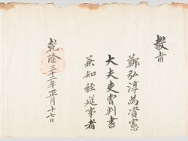 敎旨
鄭弘淳爲資憲
大夫吏曹判書
兼知經筵事者
乾隆三十二年正月十七日